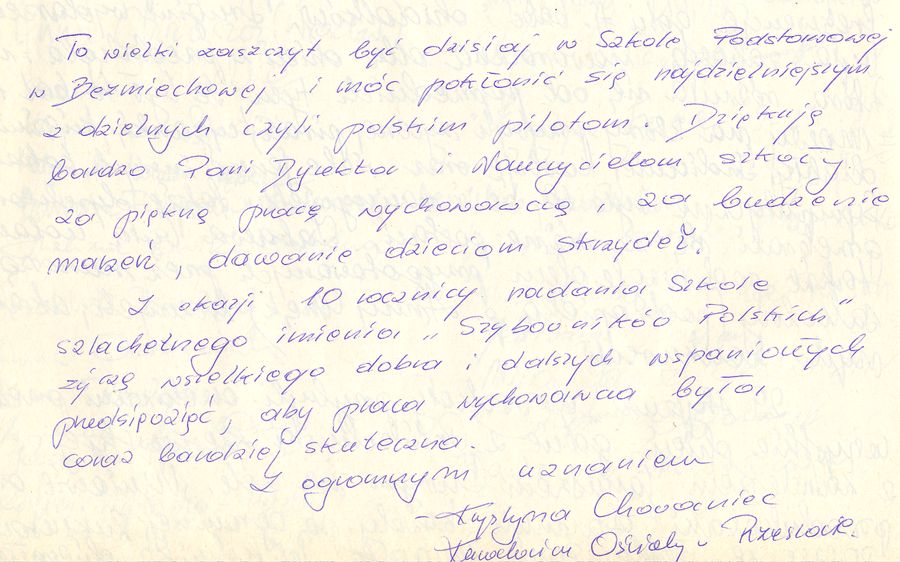 To wielki zaszczyt być dzisiaj w Szkole Podstawowej
w Bezmiechowej i móc pokłonić się najdzielniejszym
z dzielnych czyli polskim pilotom. Dziękuję
bardzo Pani Dyrektor i Nauczycielom szkoły
za piękną pracę wychowawczą, za budzenie
marzeń, dawanie dzieciom skrzydeł.
Z okazji 10 rocznicy nadania Szkole
szlachetnego imienia "Szybowników Polskich"
życzę wszelkiego dobra i dalszych wspaniałych
przedsięwzięć, aby praca wychowawcza była
coraz bardziej skuteczna.
Z ogromnym uznaniem
Krystyna Chowaniec
Oświaty Rzeszowie.